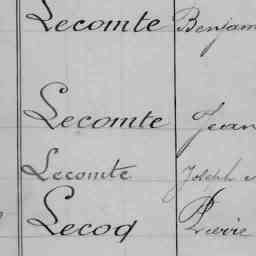 Lecomte Benjam
Lecomte Jean
Lecomte Joseph
Lecoq Pierre